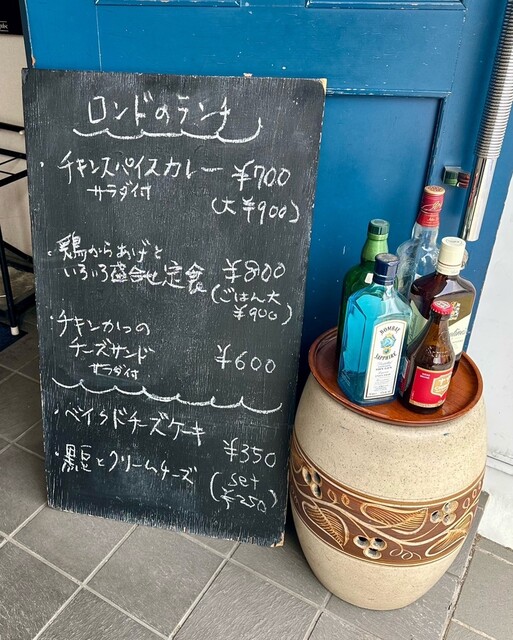 ロンドのランチ
・チキンスパイスカレー ¥700
サラダ付
(大¥900)
・鶏からあげと
いろいろ盛合せ定食 ¥800
(ごはん大
¥900)
・チキンかつの
チーズサンド ¥600
サラダ付
・ベイクドチーズケーキ
¥350
・黒豆とクリームチーズ
(set
¥250)
BOMBAY
SAPPHIRE